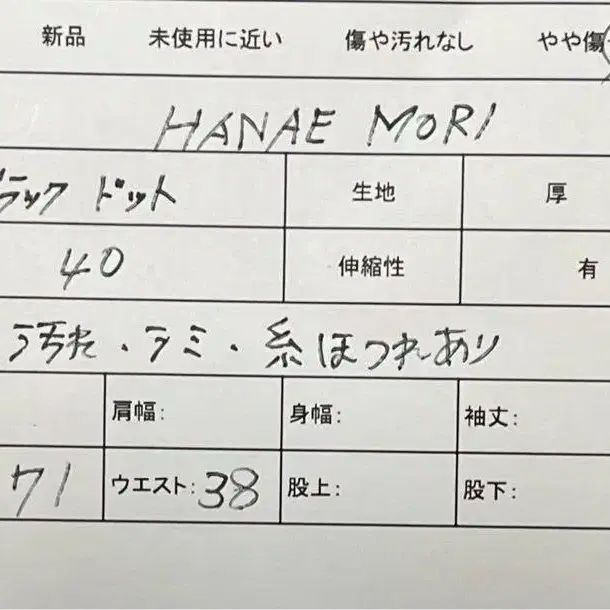 新品 未使用に近い 傷や汚れなし やや傷
HANAE MORI
ラック ドット 生地 厚
40 伸縮性 有
汚れ・ヨミ・糸ほつれあり
肩幅: 身幅: 袖丈:
71 ウエスト: 38 股上: 股下: